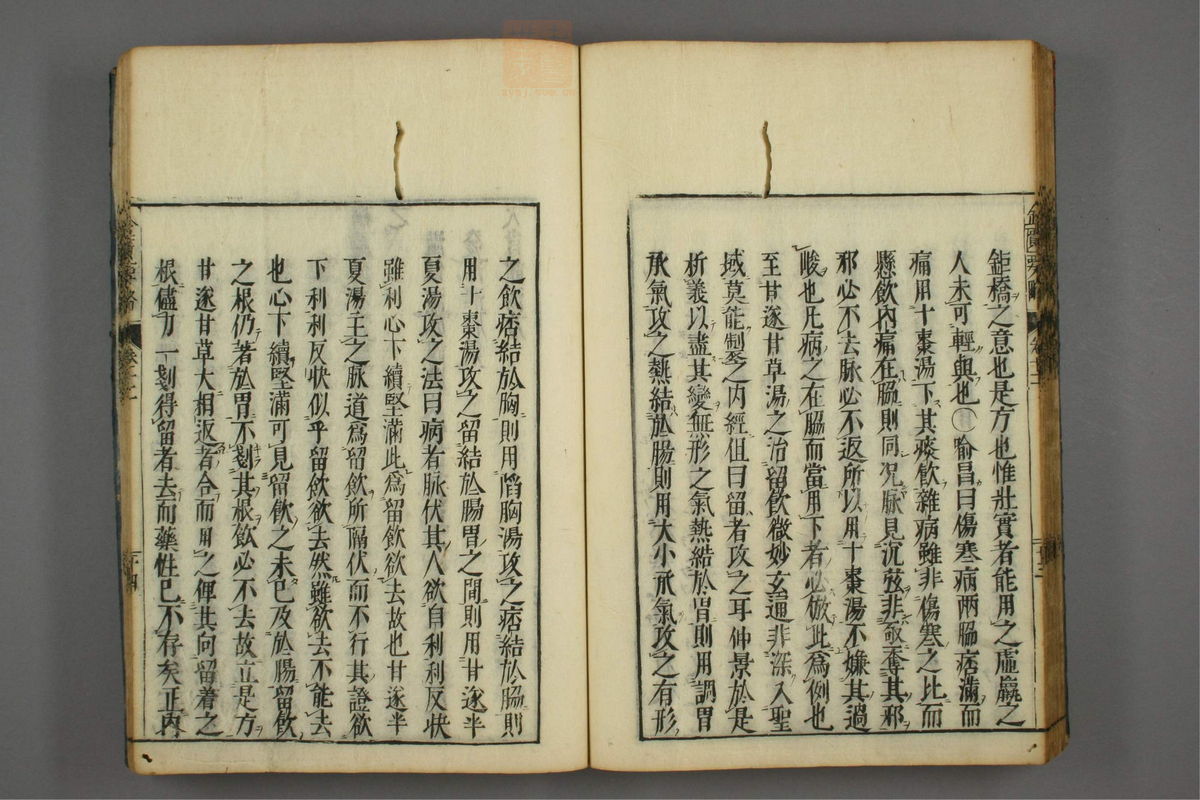 鉅橋之意也是方也惟壯實者能用之虛羸之
人未可輕與也○喻昌曰傷寒病兩脇痞滿而
痛用十棗湯下其痰飲雜病雖非傷寒之比而
懸飲內痛在脇則同况脈見沉弦非亟奪其邪
邪必不去脉必不返所以用十棗湯不嫌其過
峻也凡病之在脇而當用下者必倣此爲例也
至甘遂甘草湯之治留飲微妙玄通非深入聖
域莫能製之内經但曰留者攻之耳仲景於是
析義以盡其變無形之氣熱結於胃則用調胃
承氣攻之熱結於腸則用大小承氣攻之有形
之飲痞結於胸則用陷胸湯攻之痞結於脇則
用十棗湯攻之留結於腸胃之間則用甘遂半
夏湯攻之法曰病者脈伏其人欲自利利反快
雖利心下續堅滿此爲留飲欲去故也甘遂半
夏湯主之脈道爲留飲所隔伏而不行其證欲
下利利反快似乎留飲欲去然雖欲去不能去
也心下續堅滿可見留飲之未已及於腸留飲
之根仍著於胃不剗其根飲必不去故立是方
甘遂甘草大相返者合而用之俾其向留着之
根儘力一剗得留者去而藥性已不存矣正内